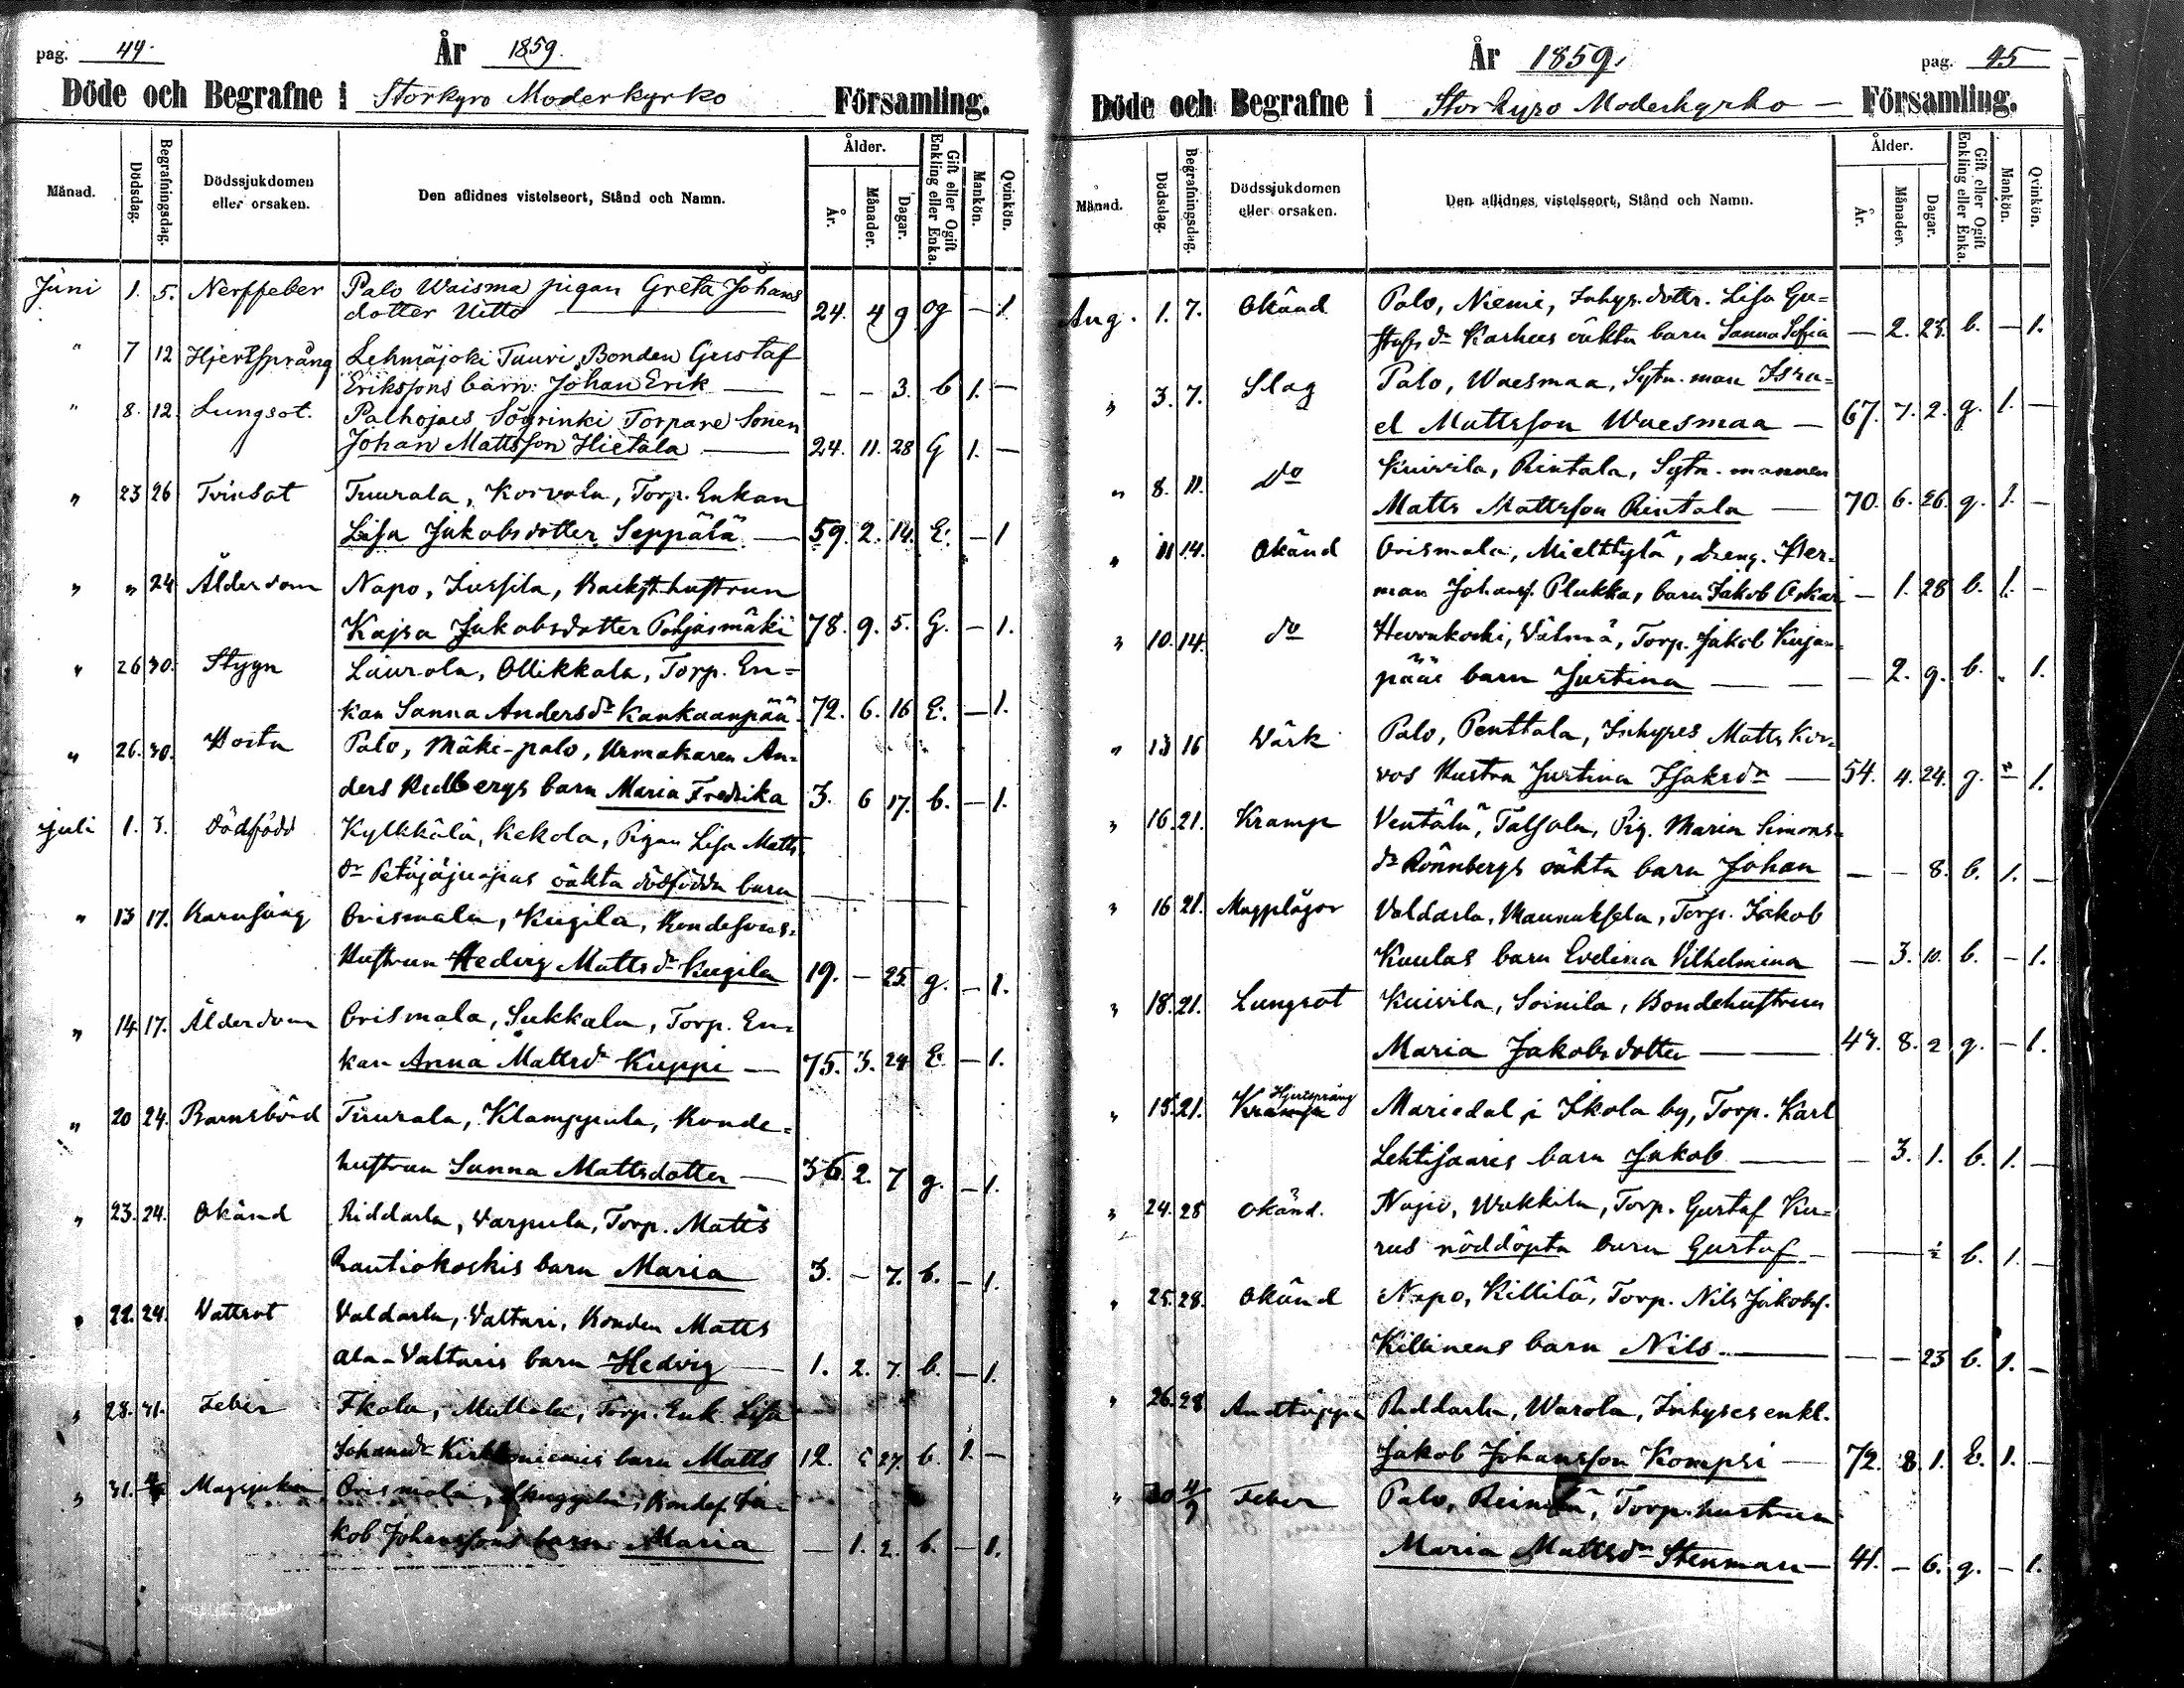 pag. 44.
År 1859.
Döde och Begrafne i Storkyro Moderkyrko Församling.
Månad.
Dödsdag.
Begrafningsdag.
Dödssjukdomen
eller orsaken.
Den aflidnes vistelseort, Stånd och Namn.
Ålder.
År.
Månader.
Dagar.
Gift eller Ogift
Enkling eller Enka.
Mankön.
Qvinkön.
Juni 1. 5. Nerffeber Palo Waisma pigan Greta Johans
dotter Uitto 24. 4 9 og — 1
" 7 12 Hjertsprång Lehmäjoki Tuuri Bonden Gustaf
Erikssons barn Johan Erik — — — 3. b 1. —
" 8. 12. Lungsot. Palhojaes Sögrinki Torpare Sonen
Johan Mattsson Hietala — 24. 11. 28 G 1. —
" 23 26 Tvinsot Tuurala, Korvola, Torp. Enkan
Lisa Jakobsdotter Seppälä — 59. 2. 14. E. — 1
" " 24 Ålderdom Napo, Jussila, Backst.hustrun
Kajsa Jakobsdotter Pohjasmäki 78. 9. 5. G. — 1.
" 26 30. Stygn Laurola, Ollikkala, Torp. En=
kan Sanna Andersdr Kankaanpää 72. 6. 16 E. — 1.
" 26. 30. Hosta Palo, Mäki-palo, Urmakaren An-
ders Rudbergs barn Maria Fredrika 3. 6 17. b. — 1.
Juli 1. 3. Dödfödd Kylkkälä, Kekola, Pigan Lisa Matts
dr oäkta dödfödda barn
" 13 17. Barnsäng Orismala, Kugila, Bondesons-
Hustrun Hedvig Mattsdr Kugila 19. — 25. g. — 1.
" 14. 17. Ålderdom Orismala, Sukkala, Torp. En-
kan Anna Mattsdr Kuppi — 75. 3. 24 E. — 1.
" 20 24. Barnsbörd Tuurala, Klamppula, Bonde-
hustrun Sanna Mattsdotter — 36. 2. 7 g. — 1.
" 23. 24. Okänd Riddarla, Varpula, Torp. Matts
Rautiokoskis barn Maria 3. — 7. b. — 1.
" 22. 24. Vattsot Valdarla, Valtari, Bonden Matts
Ala-Valtaris barn Hedvig — 1. 2. 7. b. — 1.
" 28. 31. Feber Ikola, Mattala, Torp. Enk. Lisa
Johansdr barn Matts 12. 27. b. 1. —
" 31. Orismala, Bondes. Ja-
kob Johanssons barn Maria — 1. 2. b. — 1.
År 1859.
pag. 45
Döde och Begrafne i Storkyro Moderkyrko — Församling.
Månad.
Dödsdag.
Begrafningsdag.
Dödssjukdomen
eller orsaken.
Den aflidnes vistelseort, Stånd och Namn.
Ålder.
År.
Månader.
Dagar.
Gift eller Ogift
Enkling eller Enka.
Mankön.
Qvinkön.
Aug. 1. 7. Okänd Palo, Niemi, Inhys.dottr. Lisa Gu=
stafs dr Karhus oäkta barn Sanna Sofia — 2. 23. b. — 1.
" 3. 7. Slag Palo, Waesmaa, Sytn.man Isra=
el Mattsson Waesmaa — 67. 7. 2. g. 1. —
" 8. 11. do Kuivila, Rintala, Sytn.mannen
Matts Mattsson Rintala — 70. 6. 26. g. 1. —
" 11 14. Okänd Orismala, Mielttylä, Dreng. Her-
man Johans. Plukka, barn Jakob Oskar — 1. 28 b. 1. —
" 10. 14. do Hevonkoski, Välmä, Torp. Jakob Kujan-
pääs barn Justina — — 2. 9. b. " 1.
" 13 16 Värk Palo, Penttala, Inhyses Matts Kor-
vos Hustru Justina Isaksdr — 54. 4. 24. g. " 1.
" 16. 21. Kramp Ventälä, Talsola, Pig. Maria Simons-
dr Rönnbergs oäkta barn Johan — — 8. b. 1. —
" 16 21. Magplågor Valdarla, Maunuksela, Torp. Jakob
Kuulas barn Evelina Vilhelmina — 3. 10. b. — 1.
" 18. 21. Lungsot Kuivila, Soinila, Bondehustrun
Maria Jakobsdotter — 47. 8. 2 g. — 1.
" 15. 21. Kramp Hjertsprång Mariedal i Ikola by, Torp. Karl
Lehtisaaris barn Jakob — — 3. 1. b. 1. —
" 24. 28 Okänd. Napo, Wakkila, Torp. Gustaf Ku=
rus nöddöpta barn Gustaf — — ½ b. 1. —
" 25. 28. Okänd Napo, Killilä, Torp. Nils Jakobs.
Killinens barn Nils — — — 23 b. 1. —
" 26. 28. Andtäppa Riddarla, Warola, Inhyses enkl.
Jakob Johansson Kompsi — 72. 8. 1. E. 1. —
" 30 4/9 Feber Palo, Torp.hustrun
Maria Mattsdr Stenman — 41. — 6. g. — 1.